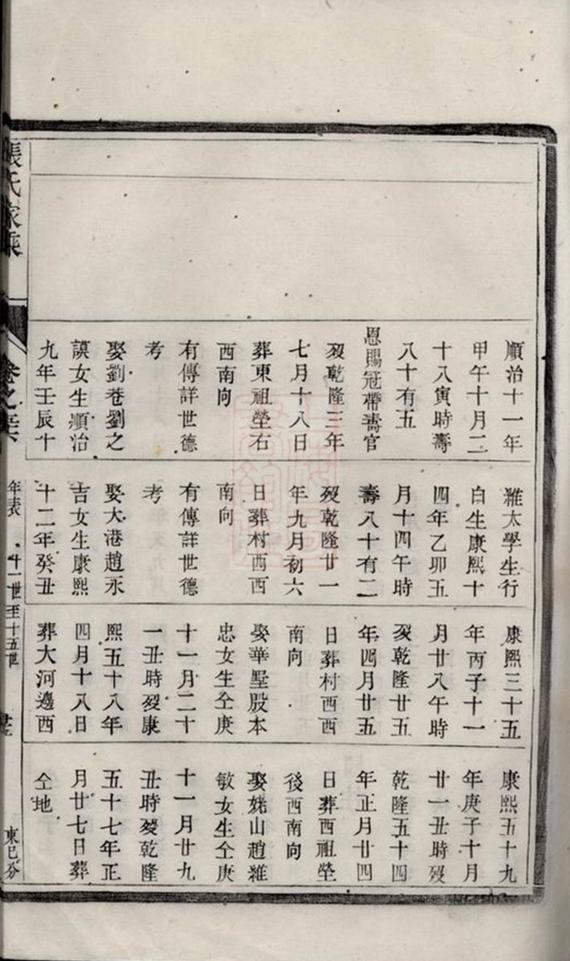 順治十一年
甲午十月二
十八寅時壽
八十有五
恩賜冠帶壽官
歿乾隆三年
七月十八日
葬東祖塋右
西南向
有傳詳世德
考
娶劉巷劉之
謨女生順治
九年壬辰十
雅太學生行
白生康熙十
四年乙卯五
月十四午時
壽八十有二
歿乾隆廿一
年九月初六
日葬村西西
南向
有傳詳世德
考
娶大港趙永
吉女生康熙
十二年癸丑
康熙三十五
年丙子十一
月廿八午時
歿乾隆廿五
年四月廿五
日葬村西西
南向
娶華墅殷本
忠女生仝庚
十一月二十
一丑時歿康
熙五十八年
四月十八日
葬大河邊西
康熙五十九
年庚子十月
廿一丑時歿
乾隆五十四
年正月廿四
日葬西祖塋
後西南向
娶姥山趙維
敏女生仝庚
十一月廿九
丑時歿乾隆
五十七年正
月廿七日葬
仝地
張氏家乘
卷之
年表 十一世至十五世
東巳分